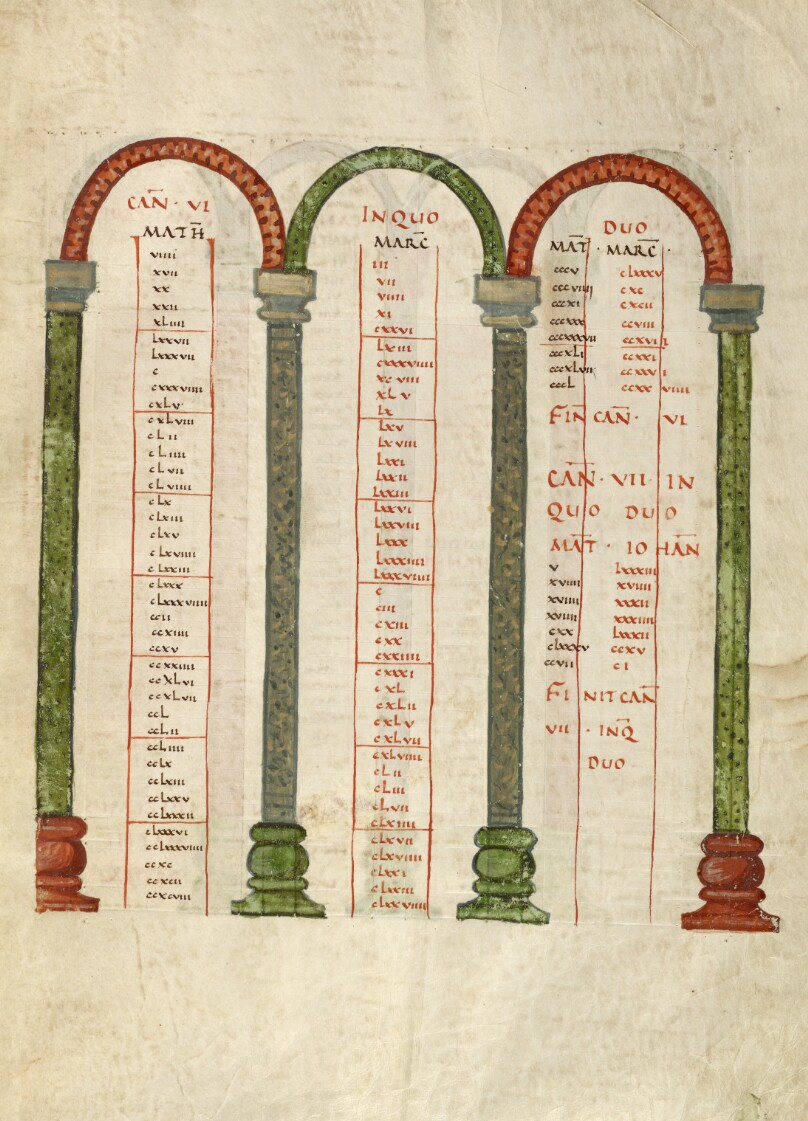 CAN̄ · VI
MATH̄
viiii
xvii
xx
xxii
xLiiii
Lxxvii
Lxxxvii
c
cxxxviiii
cxLv
cxLviii
cLii
cLiiii
cLvii
cLviiii
cLx
cLxiii
cLxv
cLxviiii
cLxxiii
cLxxx
cLxxxviiii
ccii
ccxiiii
ccxv
ccxxiiii
ccxLvi
ccxLvii
ccL
ccLii
ccLiiii
ccLx
ccLxiii
ccLxxv
ccLxxxii
cLxxxvi
ccLxxxviiii
ccxc
ccxcii
ccxcviii
INQUO
MARC̄
iii
vii
viiii
xi
cxxvi
Lxiii
cxxxviiii
xcviii
xLv
Lx
Lxv
Lxviii
Lxxi
Lxxii
Lxxiii
Lxxvi
Lxxviii
Lxxx
Lxxxiiii
Lxxxviiii
c
ciii
cxiii
cxx
cxxiiii
cxxxi
cxL
cxLii
cxLv
cxLvii
cxLviiii
cLii
cLiii
cLvii
cLxiiii
cLxvii
cLxviiii
cLxxi
cLxxiii
cLxxviiii
DUO
MAT̄ · MARC̄ ·
cccv cLxxxv
cccviiii cxc
cccxi cxcii
cccxxx ccviii
cccxxxvii ccxvii
cccxLi ccxxi
cccxLvii ccxxvi
cccL ccxxviiii
FIN̄ CAN̄ · VI
CAN̄ · VII · IN
QUO DUO
MAT̄ · IOHAN̄
v Lxxxiii
xviiii xviiii
xviiii xxxii
xviiii xxxiiii
cxx Lxxxii
cLxxxv ccxv
ccvii ci
FINIT CAN̄
VII · INQ̄
DUO